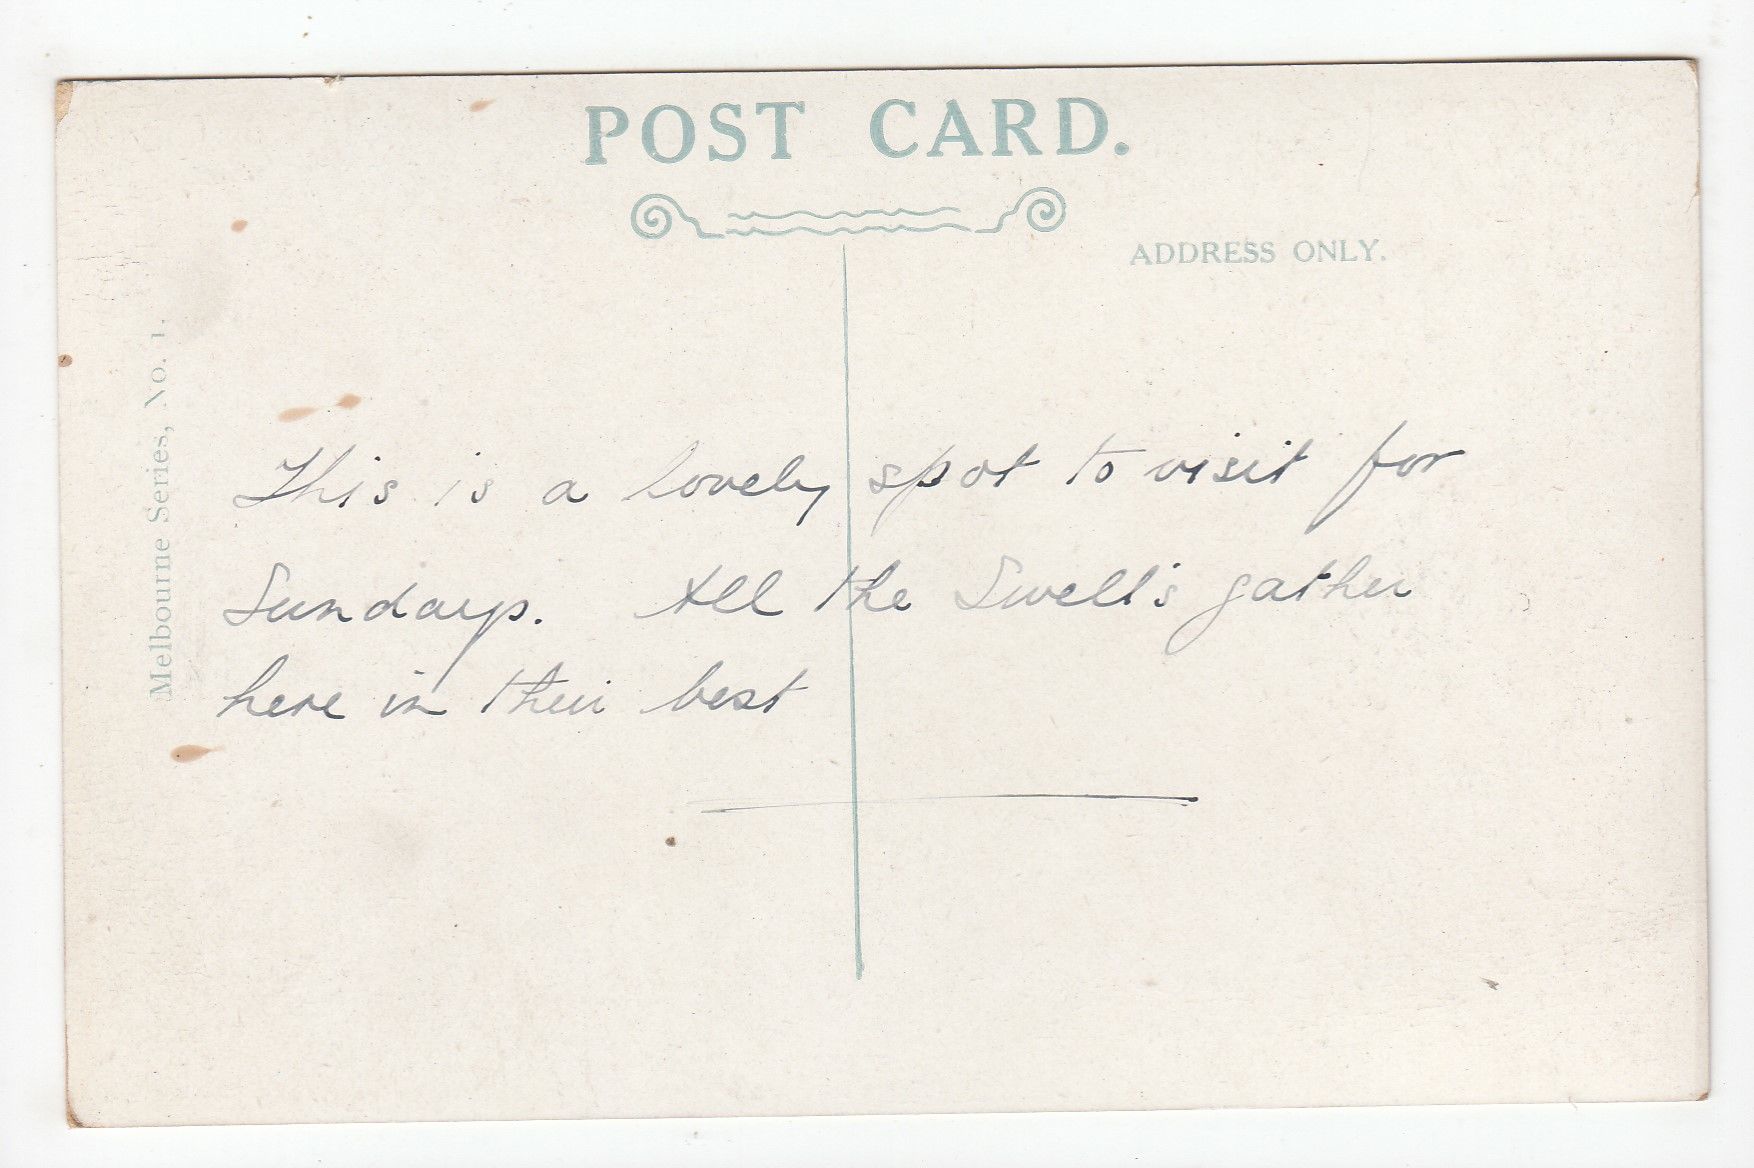 POST CARD.
ADDRESS ONLY.
Melbourne Series, No. 1.
This is a lovely spot to visit for
Sundays. All the Swell's gather
here in their best